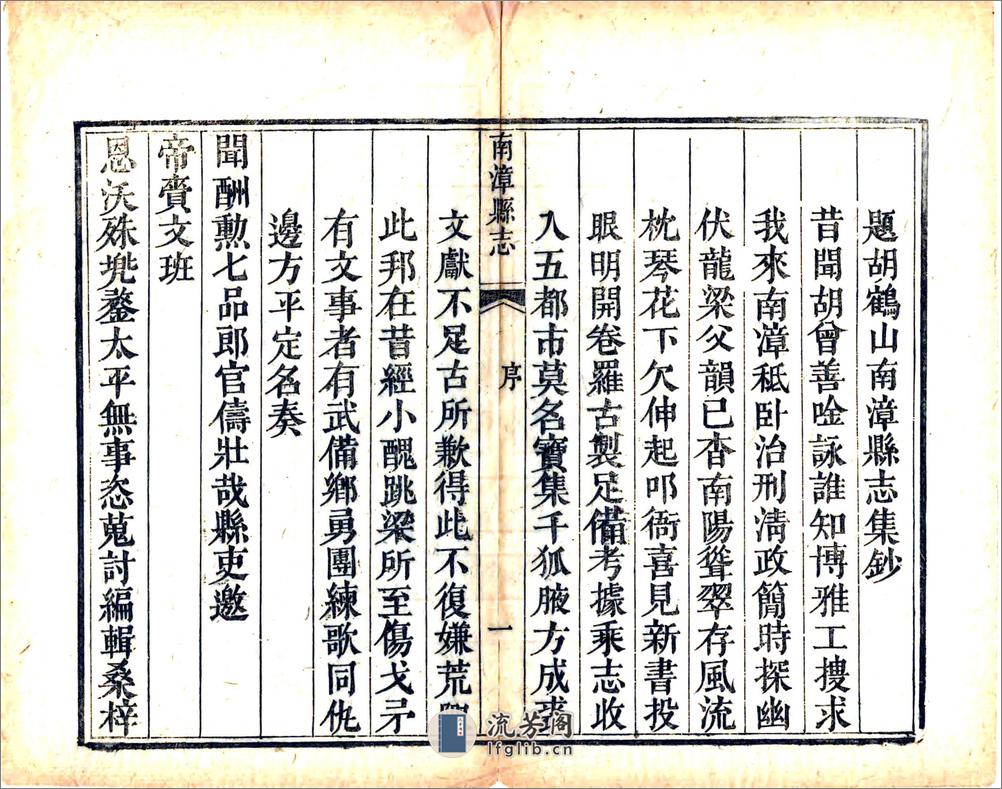 題胡鶴山南漳縣志集鈔
昔聞胡曾善唫詠誰知博雅工搜求
我來南漳秪卧治刑淸政簡時探幽
伏龍梁父韻已杳南陽聳翠存風流
枕琴花下欠伸起叩衙喜見新書投
眼明開卷羅古製足備考據乘志收
入五都市莫名寶集千狐腋方成裘
南漳縣志
序
一
文獻不足古所歉得此不復嫌荒
此邦在昔經小醜跳梁所至傷戈矛
有文事者有武備鄉勇團練歌同仇
邊方平定名奏
聞酬勲七品郎官儔壯哉縣吏邀
帝賚文班
恩沃殊兠鍪太平無事恣蒐討編輯桑梓
流芳阁
lfglib.cn